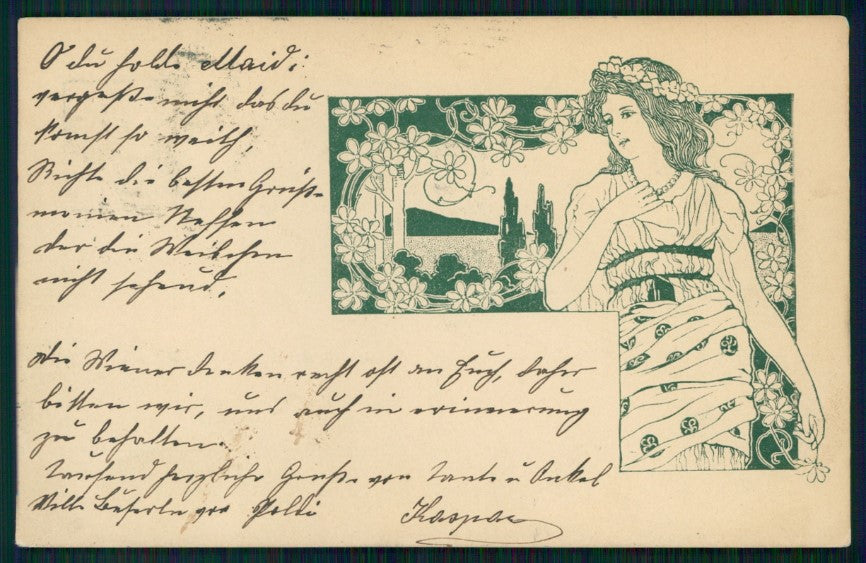 O du holde Maid!
vergeße nicht das du
komst so weith,
Richte die besten Grüße
meinen Neffen
der die Weibchen
nicht sehend.
die Wiener denken recht oft an Euch, daher
bitten wir, uns auch in erinnerung
zu behalten.
Tausend herzliche Grüße von Tante u Onkel
Viele Busserln von Poldi Kaspar